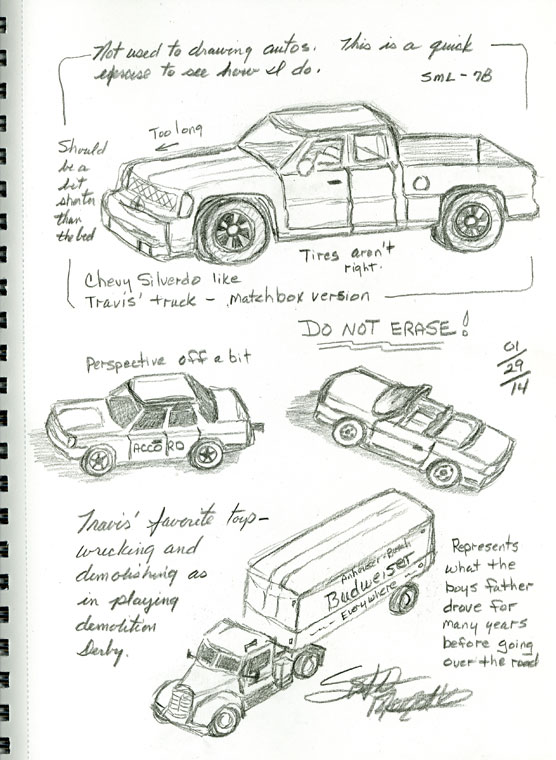 Not used to drawing autos. This is a quick
exercise to see how I do.
SML - 7B
Too long
Should
be a
bit
shorter
than
the bed
Tires aren't
right.
Chevy Silverdo like
Travis' truck - matchbox version
DO NOT ERASE!
01/29/14
Perspective off a bit
ACCORD
Travis' favorite toys-
wrecking and
demolishing as
in playing
demolition
Derby.
Anheuser-Busch
Budweiser
Everywhere
Represents
what the
boys father
drove for
many years
before going
over the road